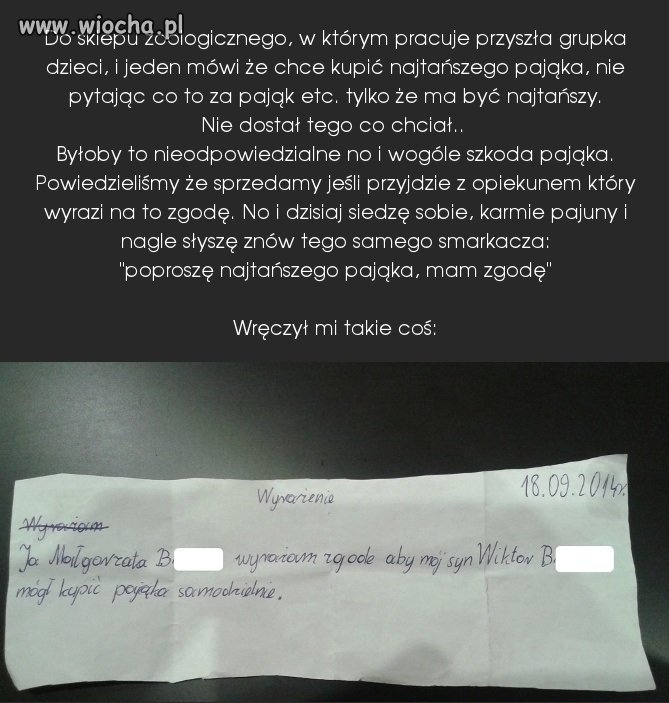 www.wiocha.pl
Do sklepu zoologicznego, w którym pracuje przyszła grupka
dzieci, i jeden mówi że chce kupić najtańszego pająka, nie
pytając co to za pająk etc. tylko że ma być najtańszy.
Nie dostał tego co chciał..
Byłoby to nieodpowiedzialne no i wogóle szkoda pająka.
Powiedzieliśmy że sprzedamy jeśli przyjdzie z opiekunem który
wyrazi na to zgodę. No i dzisiaj siedzę sobie, karmie pajuny i
nagle słyszę znów tego samego smarkacza:
"poproszę najtańszego pająka, mam zgodę"
Wręczył mi takie coś:
18.09.2014r.
Wyrarzenie
Wyrarzam
Ja Małgorzata B. wyrarzam zgode aby mój syn Wiktor B.
mógł kupić pająka samodzielnie.